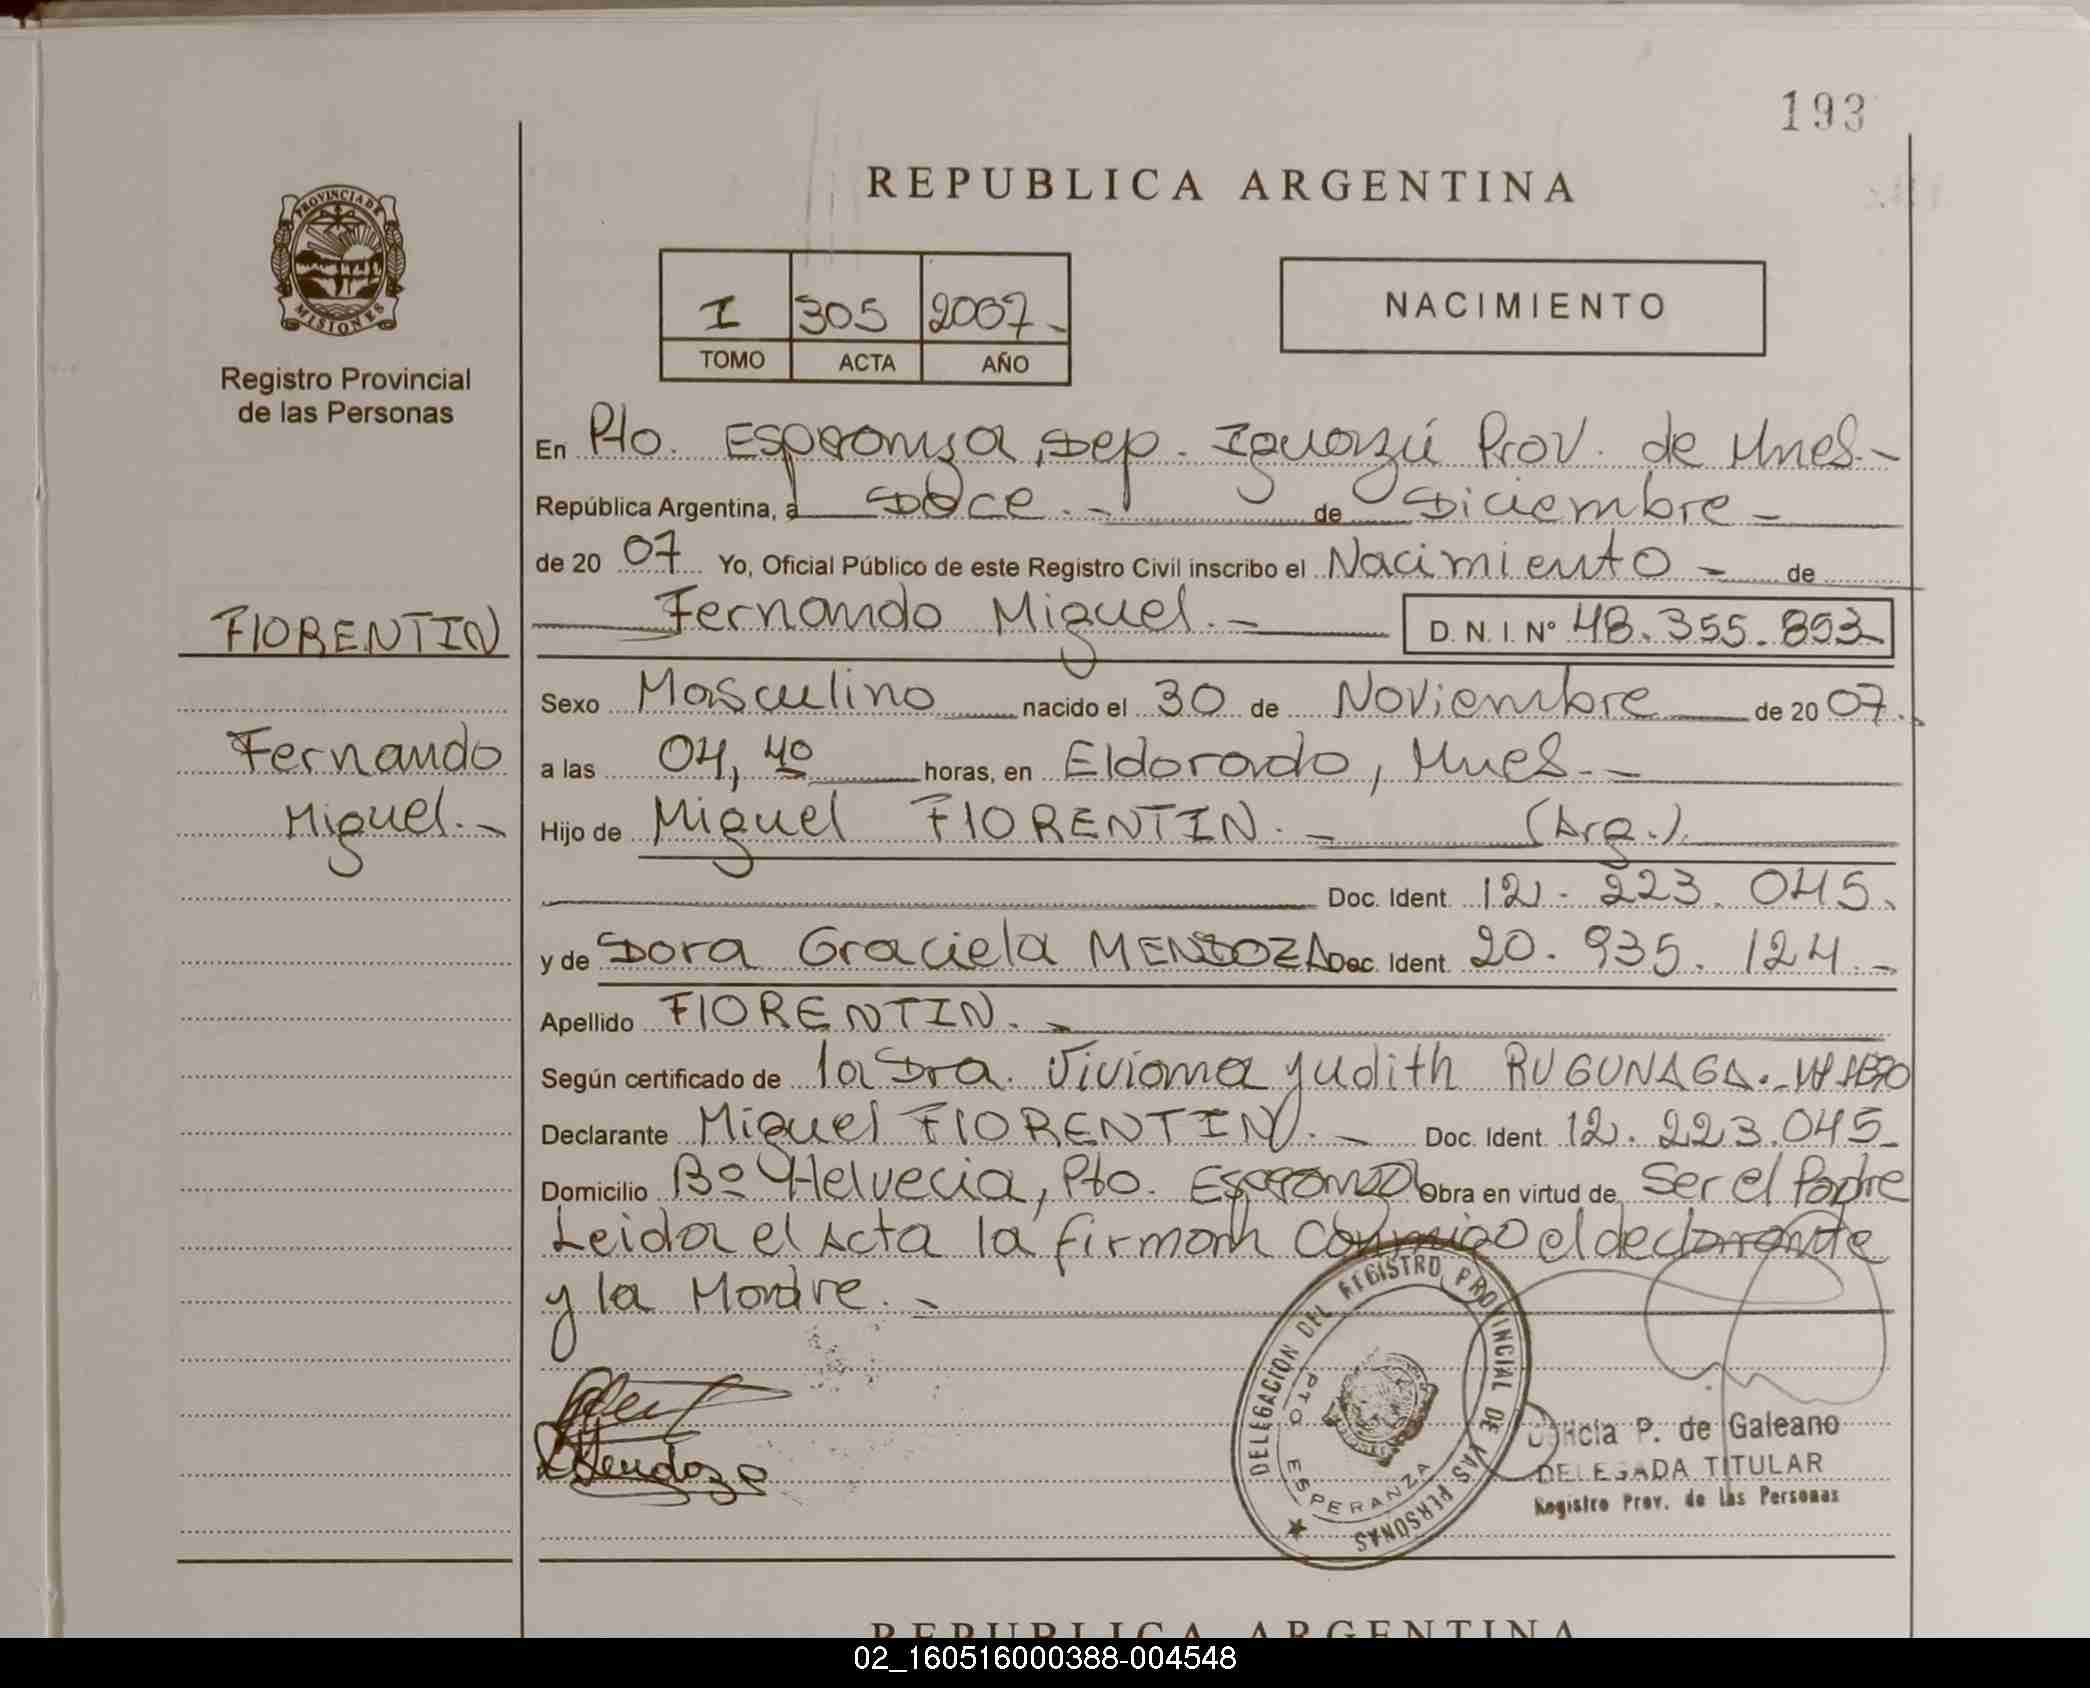 193
REPUBLICA ARGENTINA
PROVINCIA DE
MISIONES
Registro Provincial
de las Personas
I 305 2007.-
TOMO ACTA AÑO
NACIMIENTO
En Pto. Esperanza, Dep. Iguazú Prov. de Mnes.-
República Argentina, a Doce.- de Diciembre -
de 20 07 Yo, Oficial Público de este Registro Civil inscribo el Nacimiento - de
Fernando Miguel.- D. N. I. Nº 48.355.893
FIORENTIN
Fernando
Miguel.-
Sexo Masculino nacido el 30 de Noviembre de 20 07.
a las 04,40 horas, en Eldorado, Mnes.-
Hijo de Miguel FIORENTIN.- (Arg.).
Doc. Ident. 12.223.045.
y de Dora Graciela MENDOZA Doc. Ident. 20.935.124.-
Apellido FIORENTIN.-
Según certificado de la Dra. Viviana Judith RUGUNAGA.-
Declarante Miguel FIORENTIN.- Doc. Ident. 12.223.045-
Domicilio Bº Helvecia, Pto. Esperanza Obra en virtud de Ser el Padre
Leida el Acta la firman conmigo el declarante
y la Madre.-
Mendoza
DELEGACION DEL REGISTRO PROVINCIAL DE LAS PERSONAS
PTO ESPERANZA
P. de Galeano
DELEGADA TITULAR
Registro Prov. de las Personas
REPUBLICA ARGENTINA
02_160516000388-004548